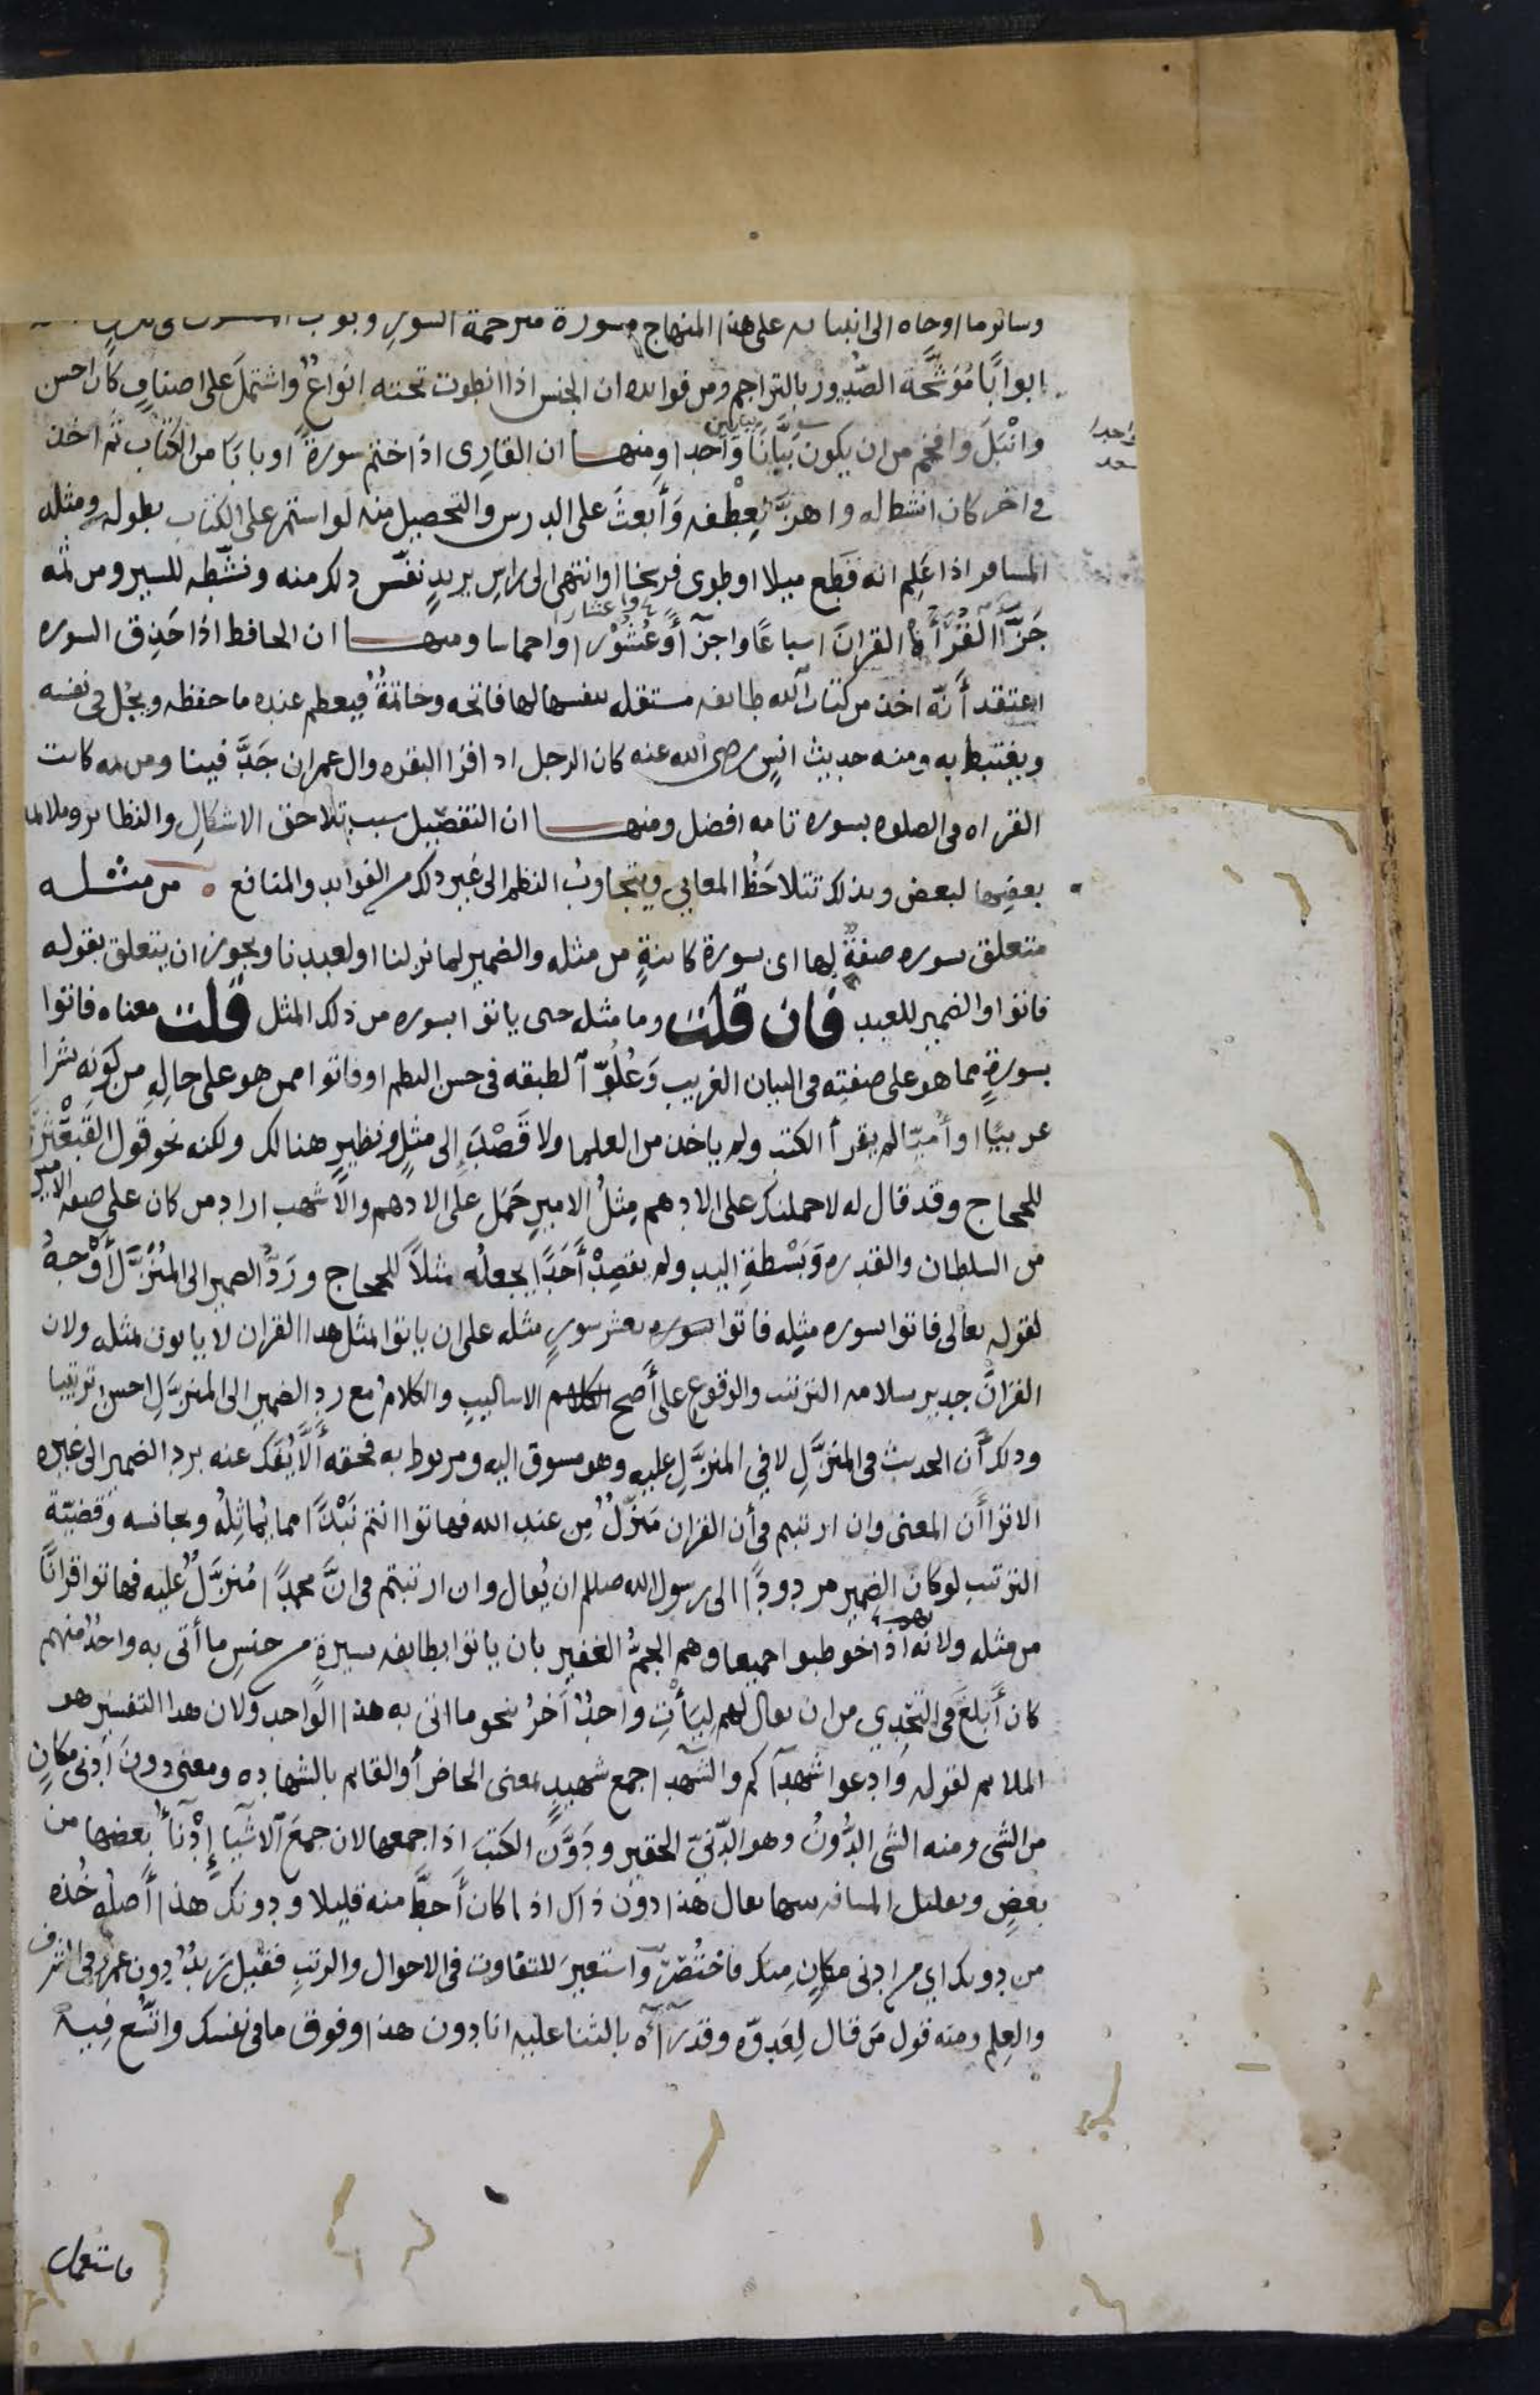 وسائر ما اوحاه الى انبيائه على هذا المنهاج مسورة مترجمة السور وبوب
ابوابًا مُوَشَّحَة الصُّدور بالتراجم ومن فوائده ان الجنس اذا انطوت تحته انواعٌ واشتملَ على اصنافٍ كان احسن
وانْبَلَ وافخم من ان يكون بَيَّانًا وَاحدا ومنها ان القارِى اذا ختم سورةً او بابَا من الكتاب ثم اخذ
في اخر كان انشط له واهزَّ لِعِطْفه وَأَبعثَ على الدرس والتحصيل منه لو استمر على الكتاب بطوله ومثله
المسافر اذا عَلِم انه قَطع ميلا او طوى فرسخا او انتهى الى راسِ بريدٍ نفّس ذلك منه ونشّطه للسير ومن ثمه
جَزَّأ القُرَّأءُ القرانَ اسباعًا واجزآءً وعُشُورًا واخماسا ومنها ان الحافظ اذا حَذِق السوره
اعتقد أنّه اخذ من كتاب الله طايفه مستقله بنفسها لها فاتحه وخاتمةٌ فيعظم عنده ما حفظه ويجُل في نفسه
ويغتبط به ومنه حديث انسٍ رضى الله عنه كان الرجل اذا قرا البقره وال عمران جَدَّ فينا ومن ثمه كانت
القراه في الصلوه بسوره تامه افضل ومنها ان التفصيل سبب تلاحق الاشكالِ والنظاير وملامه
بعضِها لبعض وبذلك تتلاحَظُ المعاني ويتجاوبُ النظم الى غير ذلك من الفوايد والمنافع ٥ من مثله
متعلق بسوره صفةٌ لها اى بسورة كاينةٍ من مثله والضمير لما نزلنا او لعبدنا ويجوز ان يتعلق بقوله
فاتوا والضمير للعبد فان قلت وما مثله حتى ياتوا بسوره من ذلك المثل قلت معناه فاتوا
بسورةٍ مما هو على صفتِه في البيان الغريب وَعُلُوّ الطبقه في حسن النظم او فاتوا ممن هو على حالِهِ من كونِه بشرا
عربيًا او أُميّا لم يقرأ الكتب ولم ياخذ من العلما ولا قَصْدَ إلى مثلٍ ونظيرٍ هنالك ولكنه نحو قول القَبَعْثَرى
للحجاج وقد قال له لاحملنك على الادهم مِثلُ الاميرِ حَمَل على الادهم والاشهب اراد من كان على صفه الامير
من السلطان والقدره وَبَسْطَةِ اليد ولم يقصِدْ أَحَدًا يجعلُه مثلًا للحجاج ورَدُّ الضمير الى المُنَزَّل أَوْجهُ
لقوله تعالى فاتوا بسوره مثلِه فاتوا بعشر سورٍ مثله على ان ياتوا بمثل هذا القران لا ياتون بمثله ولان
القرانَ جدير بسلامه الترتيب والوقوع على أصح الاساليبِ والكلامُ مع ردِ الضميرِ الى المنزَّلِ احسنُ ترتيبا
وذلك أن الحديث في المنزَّلِ لا في المنزَّلِ عليه وهو مسوق اليه ومربوط به فحقه أَلَّا يُفَكَ عنه برد الضمير الى غيره
الا ترا أن المعنى وان ارتبتم في أن القران مَنَزَّلٌ مِن عند الله فهاتوا انتم نَبْذًا مما يُماثِلُه ويجانسه وقضيّة
الترتيبِ لو كان الضمير مردودًا الى رسول الله صللم ان يُقال وان ارتبتم في انَّ محمدًا مُنزَّلٌ عليه فهاتوا قرانًا
من مثله ولانه اذا خوطبوا جميعا وهم الجمُّ الغفير بان ياتوا بطايفه يسيرةٍ من جنسِ ما أتى به واحدٌ منهم
كان أَبلغَ في التحدِي من ان يقال لهم لِيَأْتِ واحدٌ آخرُ بنحو ما اتى به هذا الواحد ولان هذا التفسير هو
الملايم لقوله وَادعوا شهدآكم والشهدآ جمع شهيدٍ بمعنى الحاضر أو القايم بالشهاده ومعنى دونَ أدنى مكانٍ
من الشى ومنه الشى الدُّونُ وهو الدَّنيّ الحقير ودَوَّن الكتبَ اذا جمعها لان جمعَ الاشيآ إِدْنآءُ بعضها من
بعضٍ وتقليل المسافه بينها يقال هذا دون ذاك اذا كان أَحطَّ منه قليلا ودونك هذا أَصلُه خُذه
من دونك اي من ادنى مكانٍ مِنك فاخْتُصِرَ واستعيرَ للتفاوت في الاحوال والرتبِ فقيل زيدٌ دون عمرٍو في الشرف
والعِلم ومنه قول مَن قال لِعَدوّه وقد رآءَه بالثنا عليه انا دون هذا وفوق ما في نفسك واتُّسِع فِيه
فاستعمل